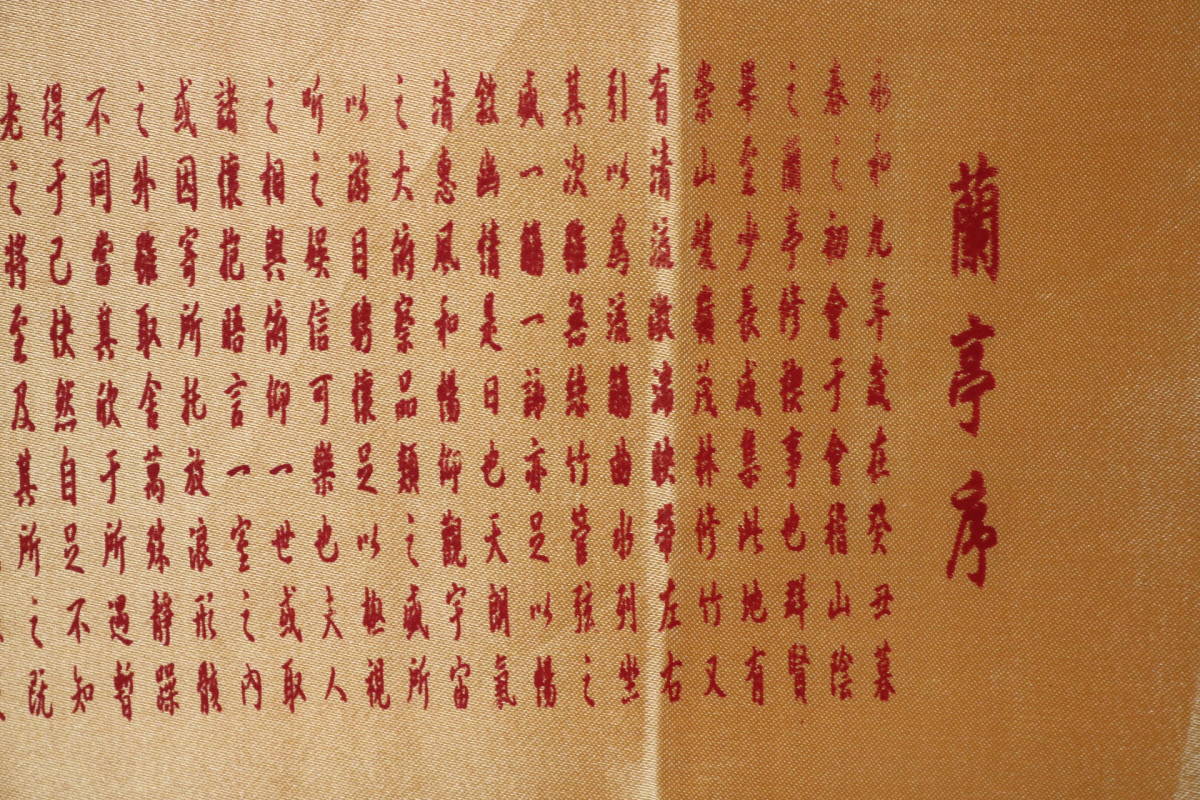 蘭亭序
永和九年歲在癸丑暮
春之初會于會稽山陰
之蘭亭修禊事也群賢
畢至少長咸集此地有
崇山峻嶺茂林修竹又
有清流激湍映帶左右
引以爲流觴曲水列坐
其次雖無絲竹管弦之
盛一觴一詠亦足以暢
敘幽情是日也天朗氣
清惠風和暢仰觀宇宙
之大俯察品類之盛所
以游目騁懷足以極視
听之娛信可樂也夫人
之相與俯仰一世或取
諸懷抱晤言一室之內
或因寄所托放浪形骸
之外雖取舍萬殊靜躁
不同當其欣于所遇暫
得于己快然自足不知
老之將至及其所之既